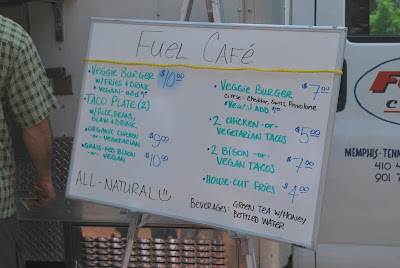 FUEL CAFÉ
• VEGGIE BURGER
W/FRIES & DRINK
* VEGAN - add
$10.00
• TACO PLATE (2)
W/RICE, BEANS,
SLAW & DRINK
• ORGANIC CHICKEN
-or- VEGETARIAN
$9.00
• GRASS-FED BISON
-or- VEGAN
$10.00
ALL-NATURAL!
• VEGGIE BURGER
CHEESE - cheddar, Swiss, Provolone
* VEGAN ADD
$7.00
• 2 CHICKEN -or-
VEGETARIAN TACOS
$5.00
• 2 BISON -or-
VEGAN TACOS
$7.00
• HOUSE-CUT FRIES
$4.00
BEVERAGES - GREEN TEA W/HONEY
BOTTLED WATER
F
C
MEMPHIS, TENN
410
901 7